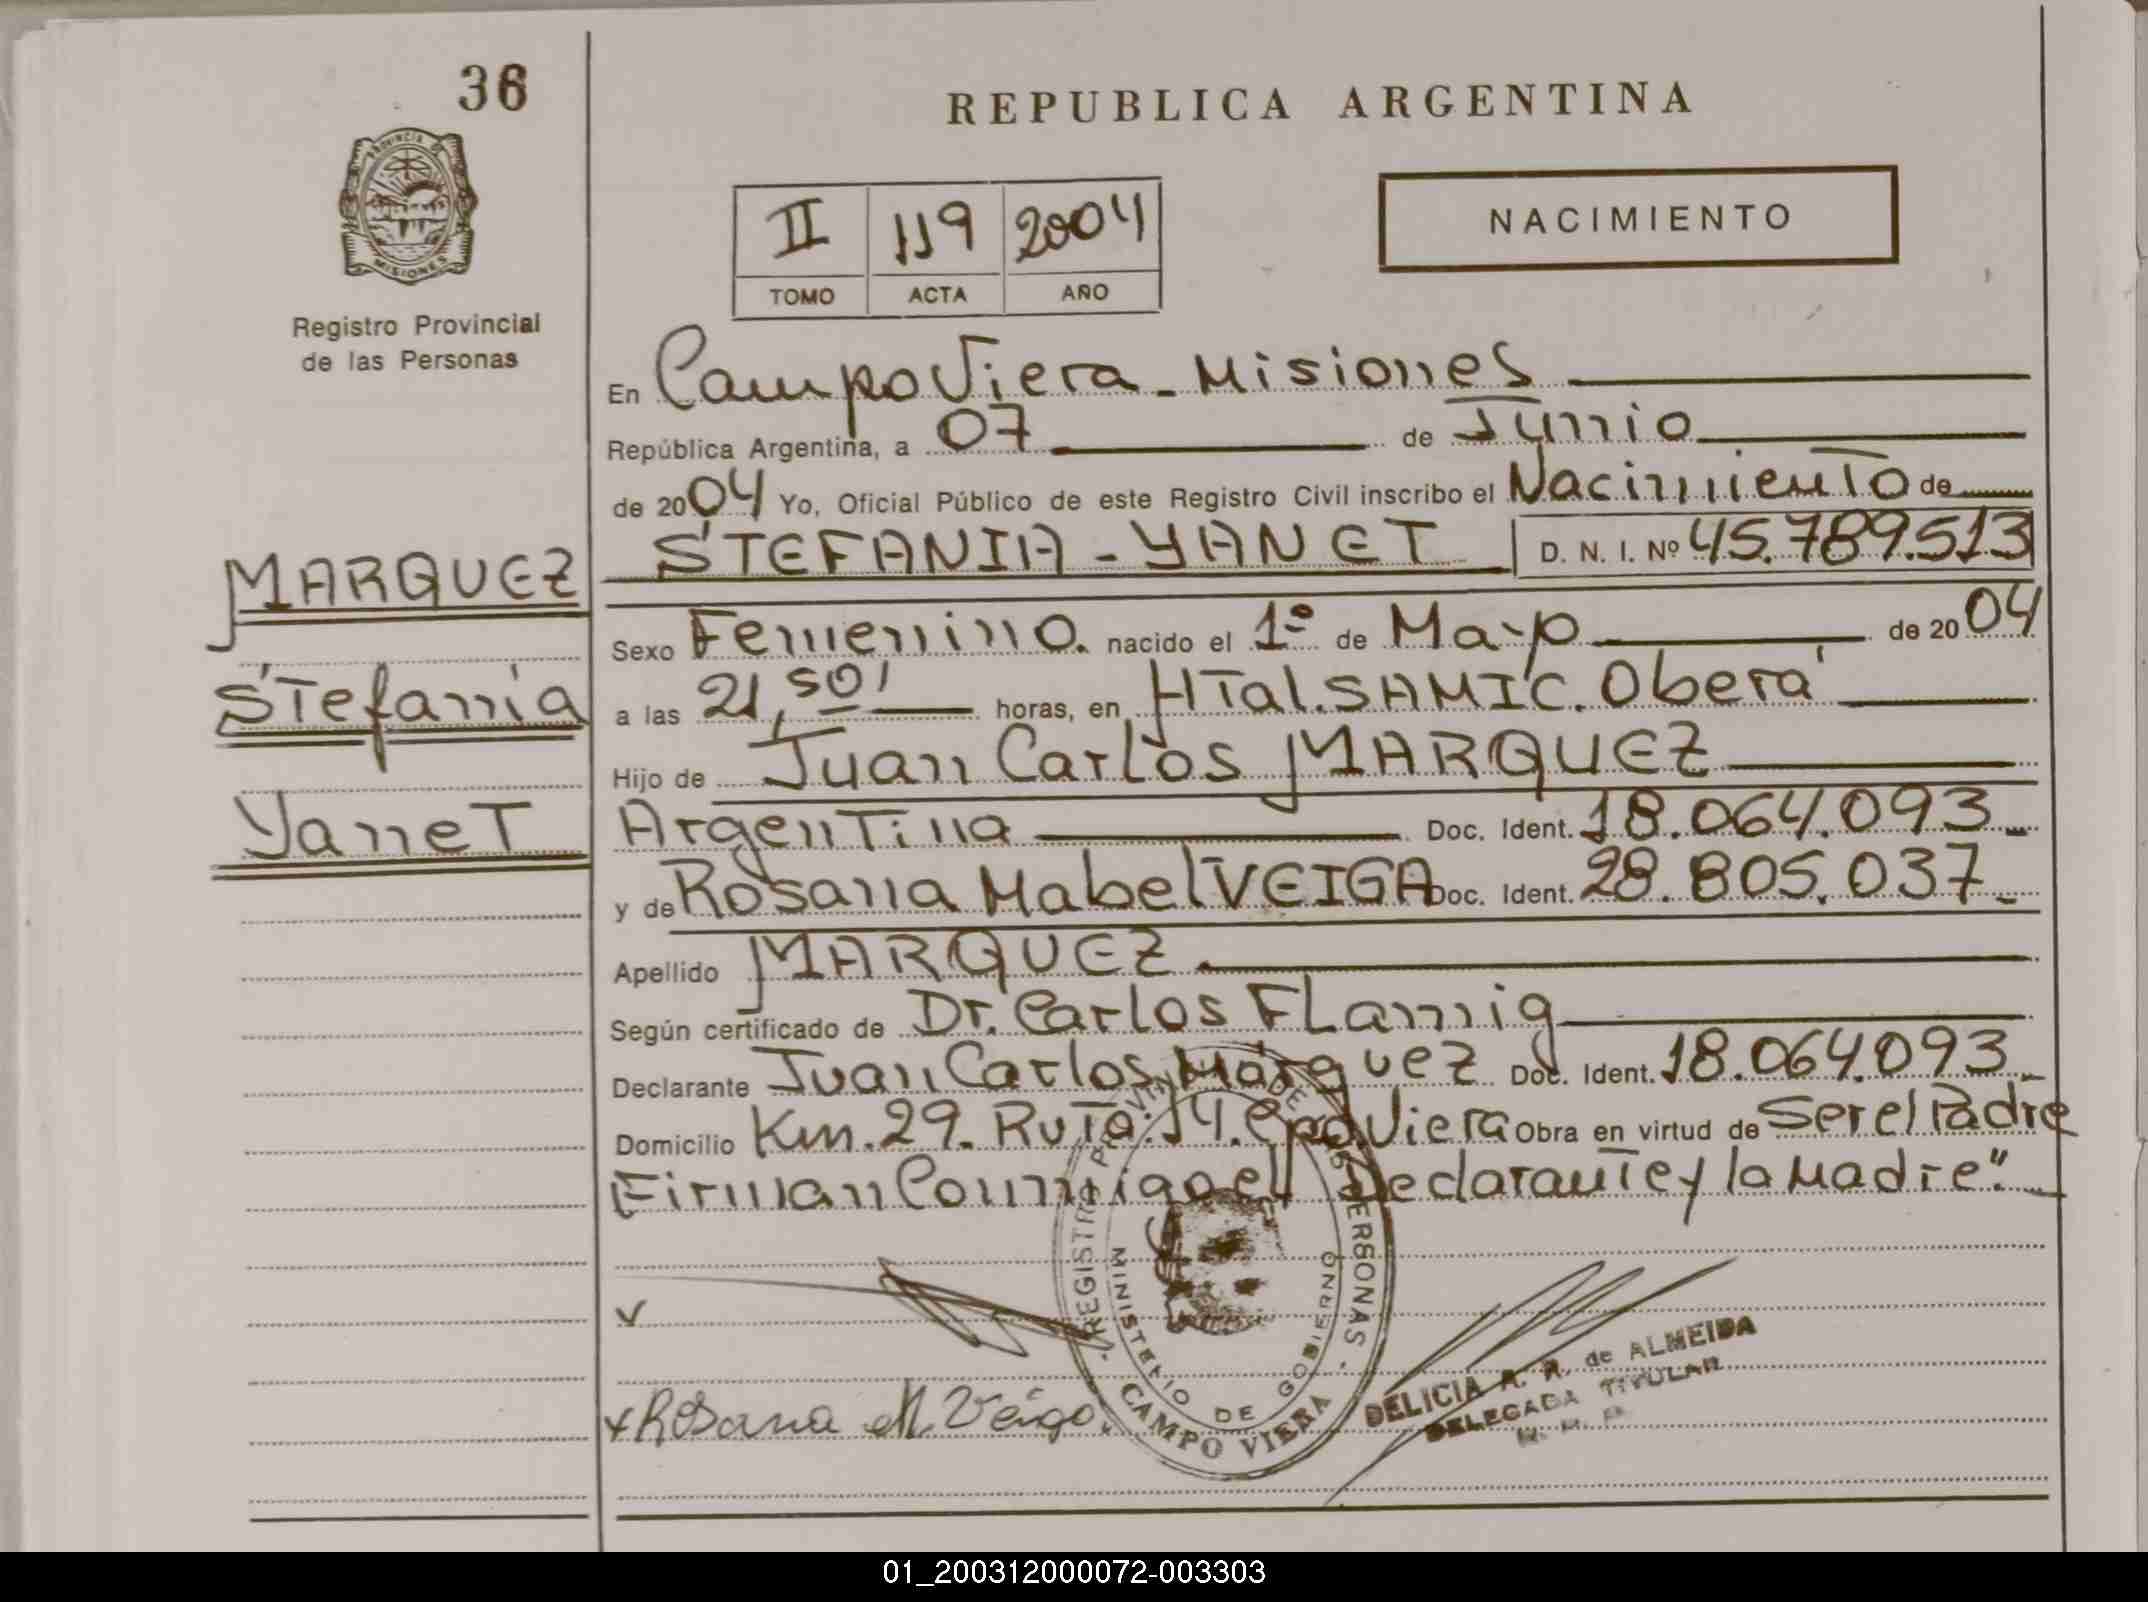 36
PROVINCIA DE
MISIONES
Registro Provincial
de las Personas
MARQUEZ
Stefania
Yanet
REPUBLICA ARGENTINA
II 119 2004
TOMO ACTA AÑO
NACIMIENTO
En Campo Viera - Misiones
República Argentina, a 07 de Junio
de 2004 Yo, Oficial Público de este Registro Civil inscribo el Nacimiento de
STEFANIA - YANET D. N. I. Nº 45.789.513
Sexo Femenino. nacido el 1º de Mayo de 2004
a las 21,50' horas, en Htal. SAMIC. Oberá
Hijo de Juan Carlos MARQUEZ
Argentina Doc. Ident. 18.064.093
y de Rosana Mabel VEIGA Doc. Ident. 28.805.037
Apellido MARQUEZ
Según certificado de Dr. Carlos Flamig
Declarante Juan Carlos Marquez Doc. Ident. 18.064.093
Domicilio Km. 29. Ruta. 14. Cpo Viera Obra en virtud de Ser el Padre
Firman Conmigo el Declarante y la Madre".
REGISTRO PROVINCIAL DE LAS PERSONAS
MINISTERIO DE GOBIERNO
CAMPO VIERA
x Rosana M. Veiga
DELICIA A. R. de ALMEIDA
DELEGADA TITULAR
01_200312000072-003303